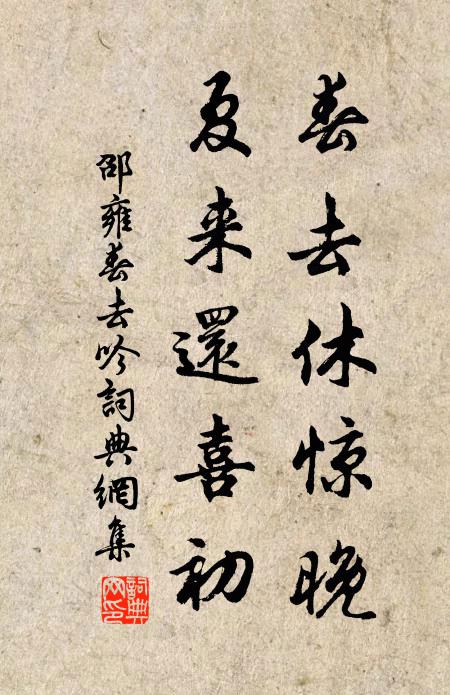 春去休惊晚
夏来還喜初
邵雍春去吟詞典網集
詞典